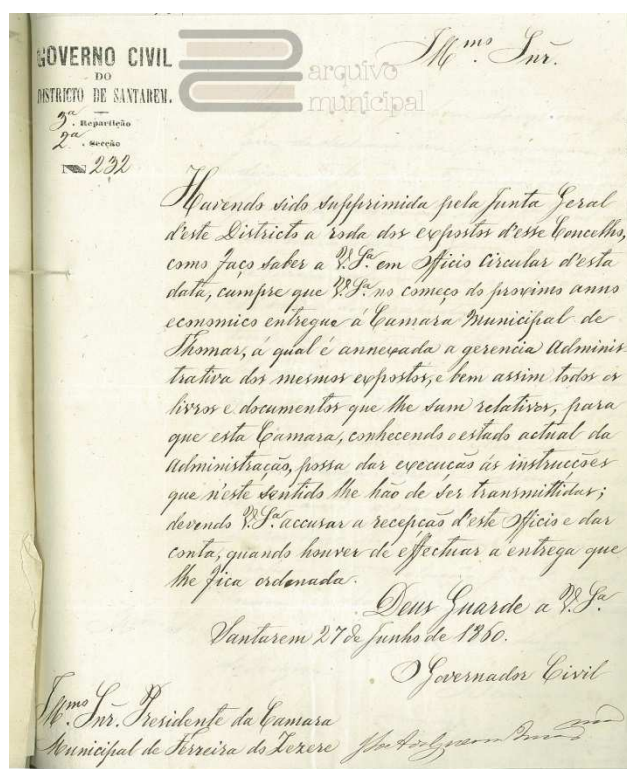 GOVERNO CIVIL
DO
DISTRICTO DE SANTAREM.
3ª. Repartição
2ª. Secção
232
arquivo
municipal
Illmo. Snr.
Havendo sido supprimida pela Junta Geral
d'este Districto a roda dos expostos d'esse Concelho,
como faço saber a V.Sª. em Officio Circular d'esta
data, cumpre que V.Sª. no começo do proximo anno
economico entregue á Camara Municipal de
Thomar, á qual é annexada a gerencia Adminis-
trativa dos mesmos expostos, e bem assim todos os
livros e documentos que lhe sam relativos, para
que esta Camara, conhecendo o estado actual da
Administração, possa dar execucão ás instrucções
que n'este sentido lhe hão de ser transmittidas;
devendo V.Sª. accusar a recepcão d'este Officio e dar
conta, quando houver de effectuar a entrega que
lhe fica ordenada.
Deus Guarde a V.Sª.
Santarem 27 de Junho de 1860.
O Governador Civil
Illmo. Snr. Presidente da Camara
Municipal de Ferreira do Zezere